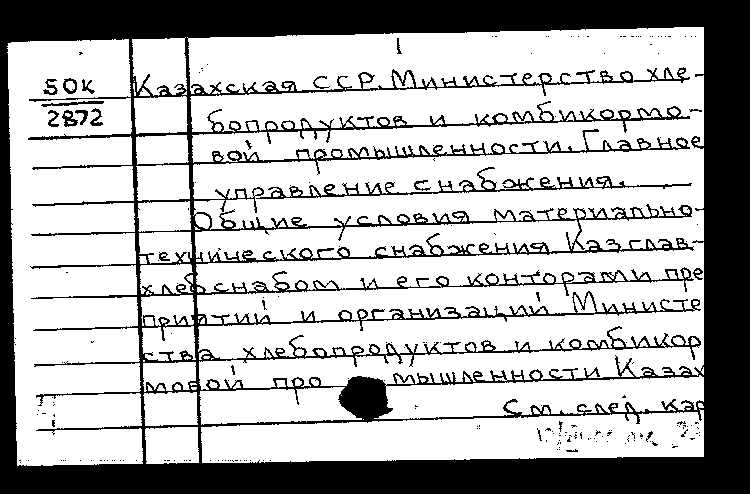 1
БОК
2872
Казахская ССР. Министерство хле-
бопродуктов и комбикормо-
вой промышленности. Главное
управление снабжения.
Общие условия материально-
технического снабжения Казглав-
хлебснабом и его конторами пре
приятий и организаций Министе
ства хлебопродуктов и комбикор
мовой промышленности Казах
См. след. кар